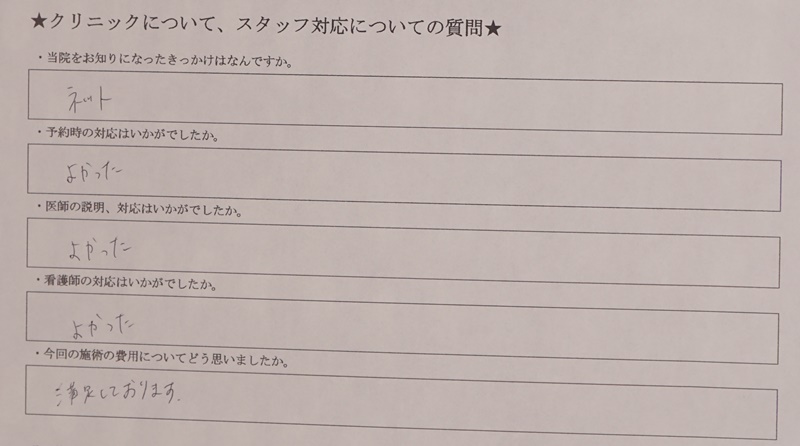 ★クリニックについて、スタッフ対応についての質問★
・当院をお知りになったきっかけはなんですか。
ネット
・予約時の対応はいかがでしたか。
よかった
・医師の説明、対応はいかがでしたか。
よかった
・看護師の対応はいかがでしたか。
よかった
・今回の施術の費用についてどう思いましたか。
満足しております.